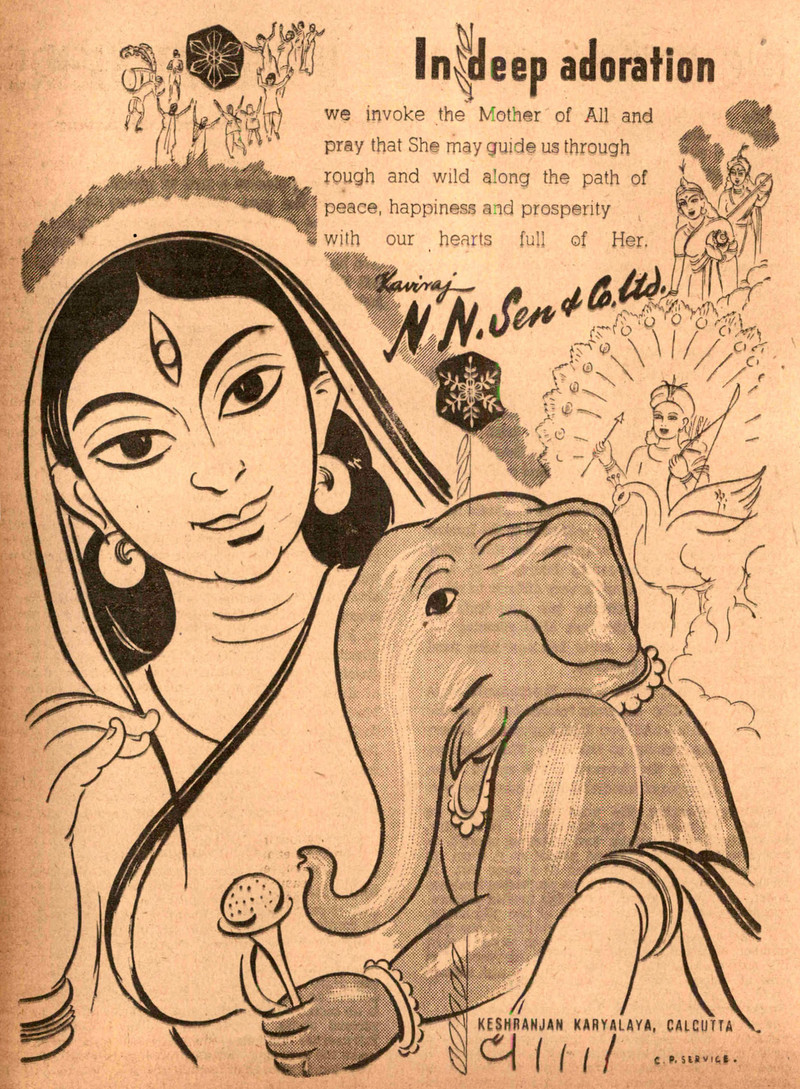 In deep adoration
we invoke the Mother of All and
pray that She may guide us through
rough and wild along the path of
peace, happiness and prosperity
with our hearts full of Her.
Kaviraj
N N. Sen & Co. Ltd.
KESHRANJAN KARYALAYA, CALCUTTA
C. P. SERVICE.